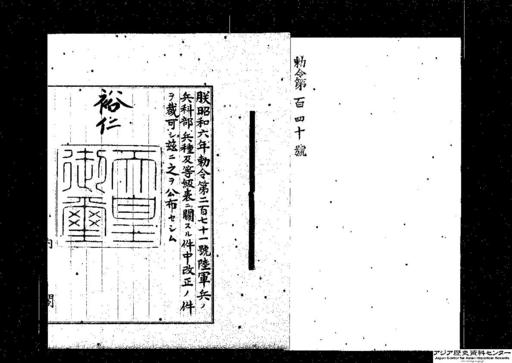 勅令第百四十號
朕昭和六年勅令第二百七十一號陸軍兵ノ
兵科部兵種及等級表ニ關スル件中改正ノ件
ヲ裁可シ茲ニ之ヲ公布セシム
裕仁
天皇
御璽
内閣
アジア歴史資料センター
Japan Center for Asian Historical Records